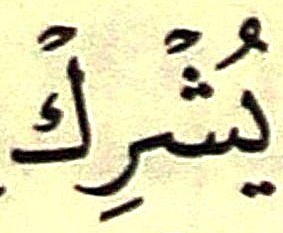 يُشْرِكْ